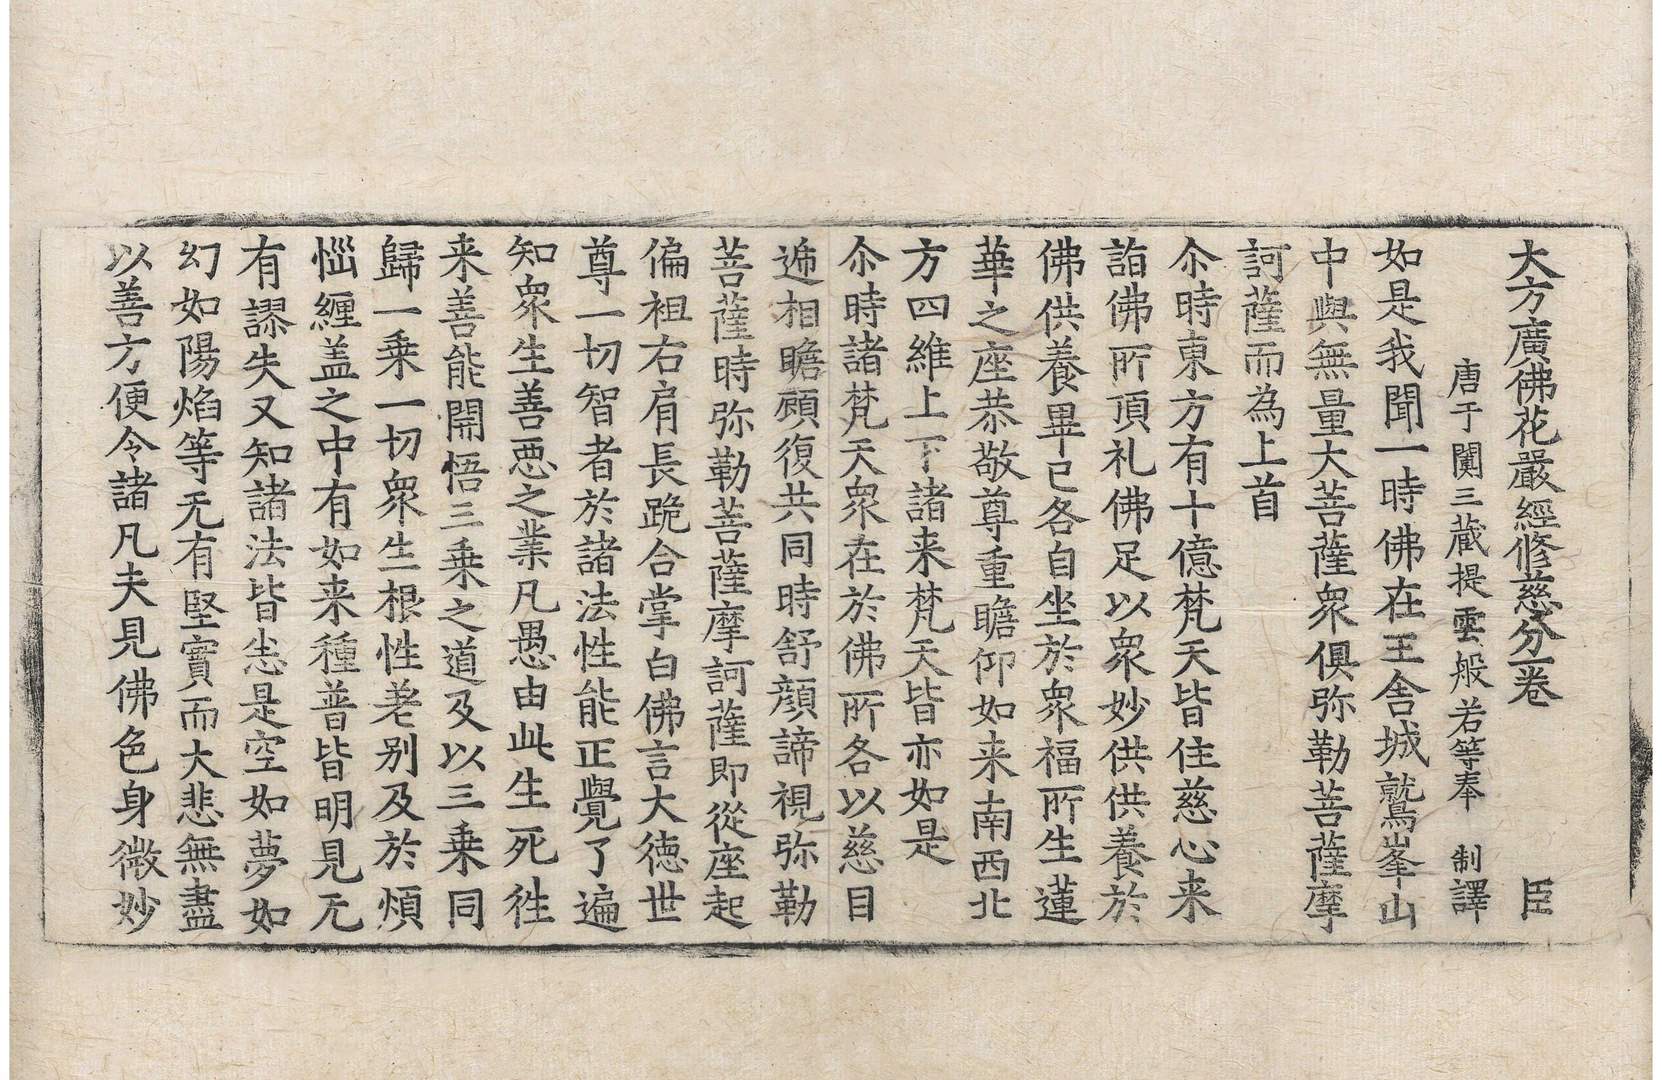 大方廣佛花嚴經修慈分一卷 臣
唐于闐三藏提雲般若等奉 制譯
如是我聞一時佛在王舍城鷲峯山
中與無量大菩薩衆俱弥勒菩薩摩
訶薩而為上首
尒時東方有十億梵天皆住慈心来
詣佛所頂礼佛足以衆妙供供養於
佛供養畢已各自坐於衆福所生蓮
華之座恭敬尊重瞻仰如来南西北
方四維上下諸来梵天皆亦如是
尒時諸梵天衆在於佛所各以慈目
遞相瞻顧復共同時舒顔諦視弥勒
菩薩時弥勒菩薩摩訶薩即從座起
偏袒右肩長跪合掌白佛言大德世
尊一切智者於諸法性能正覺了遍
知衆生善惡之業凡愚由此生死徃
来善能開悟三乗之道及以三乗同
歸一乗一切衆生根性差別及於煩
惱纏盖之中有如来種普皆明見无
有謬失又知諸法皆悉是空如夢如
幻如陽焰等无有堅實而大悲無盡
以善方便令諸凡夫見佛色身微妙